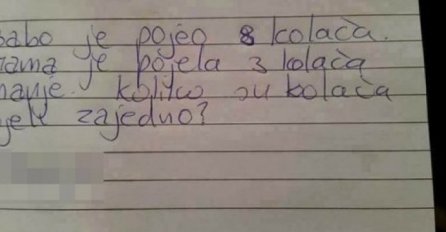 babo je pojeo 8 kolača.
mama je pojela 3 kolača
manje. koliko su kolača
jeli zajedno?